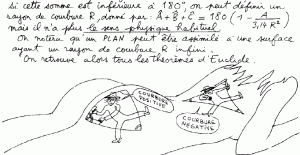 si cette somme est inférieure à 180°, on peut définir un
rayon de courbure R donné par : Â + B̂ + Ĉ = 180 (1 - A / 3,14 R²)
mais il n'a plus le sens physique habituel.
On notera qu'un PLAN peut être assimilé à une surface
ayant un rayon de courbure R infini.
On retrouve alors tous les théorèmes d'Euclide.
COURBURE
POSITIVE
COURBURE
NEGATIVE